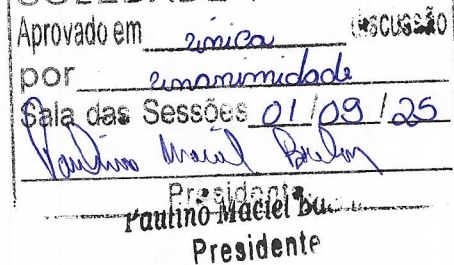 SOLEDADE
Aprovado em única discussão
por unanimidade
Sala das Sessões 01/09/25
Paulino Maciel
Presidente
Paulino Maciel
Presidente